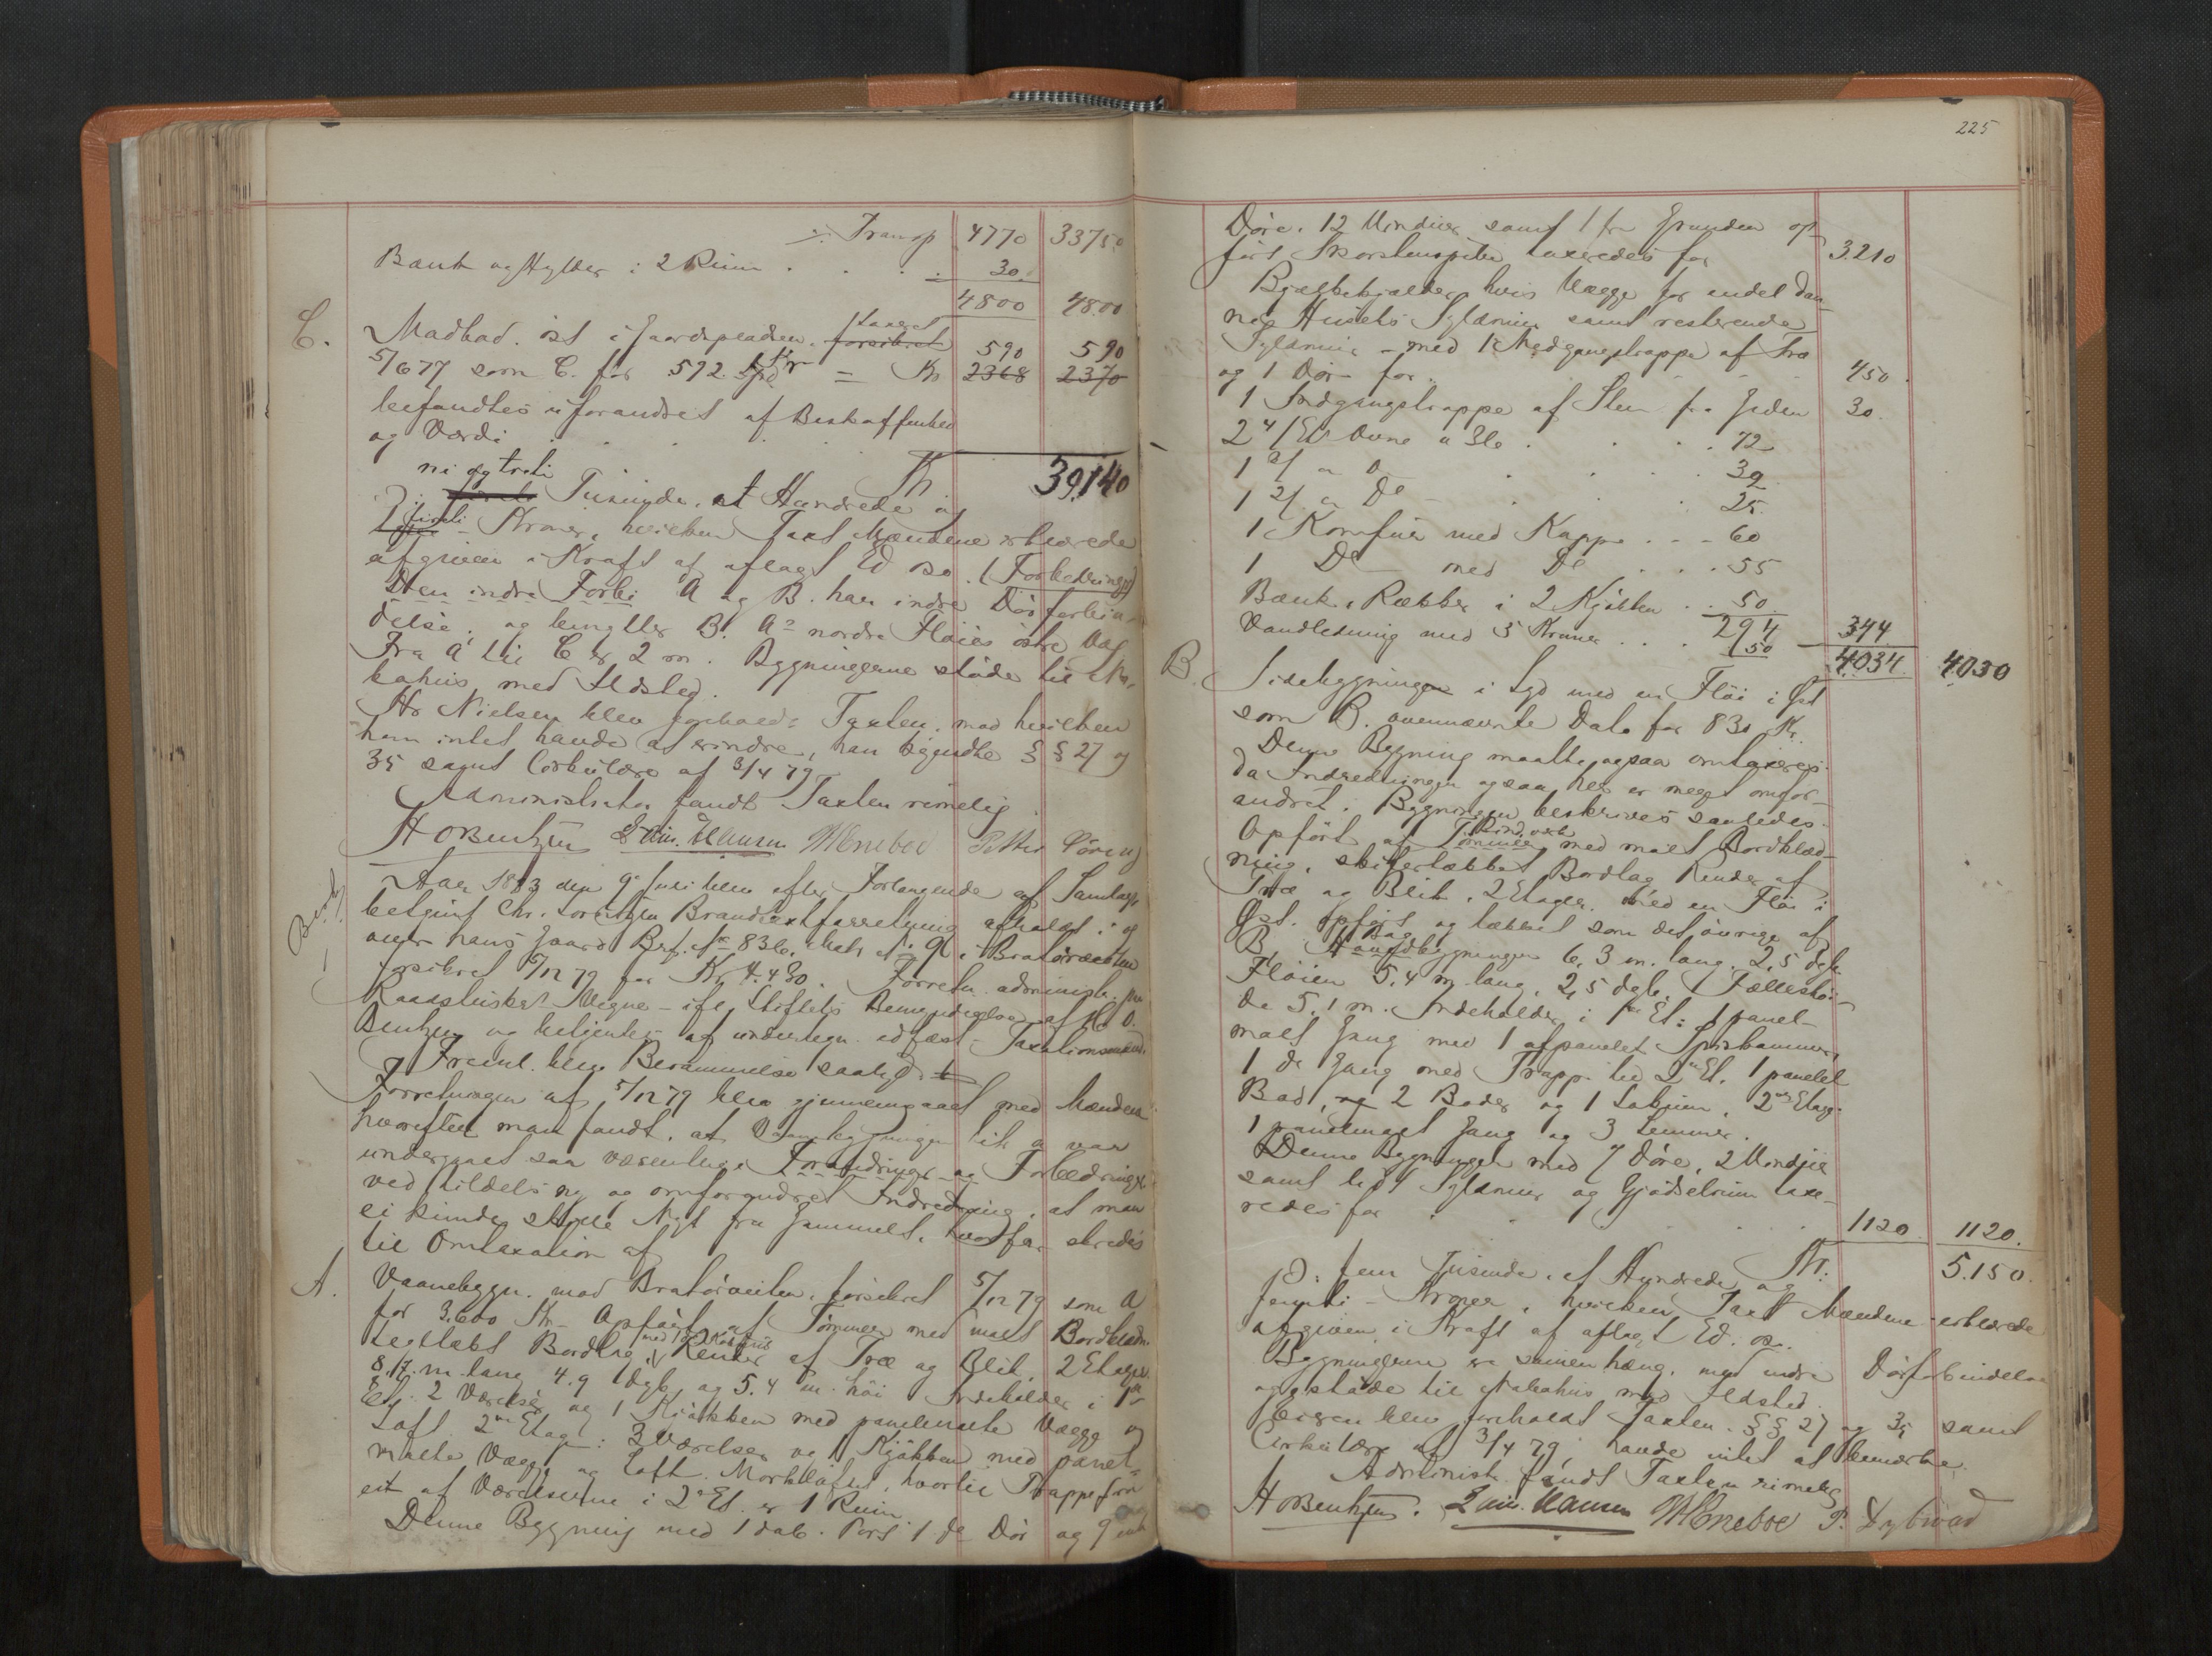 ÷ Transp 4770 33750
Bænk og Hylder i 2 Rum . . . . 30.
4800 48.00
C. Madbod. øst i Gaardspladsen. forsikret taxeret 590 590
5/6 77 som C. for 592 Spd Kr = Kr 2368 2370
befandtes uforandret af Beskaffenhed
og Værdi . . . . .
Kr 39.140
ni og treti Tusinde, et Hundrede og
firti - Kroner, hvilken Taxt Mændene erklærede
afgiven i Kraft af aflagt Ed os. (Forbedringgs)
Den indre Forbi A og B. har indre Dörforbin-
delse. og benytter B. A's nordre Flöies östre Væg
Fra A til C er 2 m. Bygningerne støde til Na-
bohus med Ildsted.
Hr Nielsen blev foreholdt Taxten, mod hvilken
han intet havde at erindre, han kjendte § § 27 og
35 samt Cirkulære af 3/4 79
Administrator fandt Taxten rimelig.
HOBentzen Edm. Hansen MEneboe Petter Sörens
Aar 1883 den 9de Juli blev efter Forlangende af Samlags
betjent Chr. Lorentzen Brandtaxtforretning afholdt i og
over hans Gaard Brf. No 836, Matr No 9b i Bratörveiten
forsikret 5/12 79 for Kr 4.430. Forretn. administr. paa
Raadstuskr. Vegne - ifl. Stiftets Bemyndigelse - af H. O.
Bentzen og betjentes af undertegn. edfæst. Taxationsmænd.
Fremt. blev Berammelse saalyd. t
Forretningen af 5/12 79 blev gjennemgaaet med Mændene
hvorefter man fandt, at Vaanebygningen Litr a var
undergaaet saa væsentlige Forandringer og Forbedringer
ved tildels ny og omforandret Indredning, at man
ei kunde skille Nyt fra Gammelt, hvorfor skredes
til Omtaxation af
A. Vaanebygn. mod Bratörveiten, forsikret 5/12 79 som A
for 3.600 Kr - Opfört af Tömmer med malt Bordklædn.
Tegllagt Bordtag, Render af Træ og Blik. 2 Etager
8,17 m. lang 4.9 dyb og 5.4 m. höi Indeholder i 1ste
Et. 2 Værelser og 1 Kjökken med panelmalte Vægge og
Loft 2den Etage: 3 Værelser og 1 Kjökken med panel-
malte Vægge og Loft. Mørkloftet, hvortil Trappe fra
eit af Værelserne i 2n Et. er 1 Rum.
Denne Bygning med 1 dob. Port 1 do Dör og 9 enk
225
Döre. 12 Vinduer samt 1 fra Grunden op
fört Skorstenspibe taxeredes for 3210
Bjælkekjelder, hvis Vægge for endel dan-
ner Husets Syldmur samt resterende
Syldmur - med 1 Nedgangstrappe af Træ
og 1 Dör - for . . . 450.
1 Indgangstrappe af Sten fra Gaden 30.
2 4/Et. Ovne a 36 . . . . 72
1 3/ „ Do . . . . 32
1 2/ „ Do . . . . 25.
1 Komfur med Kappe . . . 60
1 Do med Do . . . . 55
Bænk, Rækker i 2 Kjökken . . 50
Vandledning med 3 Kraner . . . 294 344
50 4.034. 4030
B. Sidebygningen i Syd med en Flöi i Öst
som B. ovennævnte Dato for 830 Kr.
Denne Bygning maatte ogsaa omtaxeres
da Indredningen ogsaa her er meget omfor-
andret. Bygningen beskrives saaledes.
Opfört af Bindverk Tömmer med malt Bordklæd-
ning, skifertækket Bordtag Render af
Træ og Blik, 2 Etager. med en Flöi i
Öst. opfört og tækket som det övrige af
B. Bag Hovedbygningen 6,3 m. lang, 2,5 dyb,
Flöien 5,4 m. lang, 2,5 dyb, Fælleshöi-
de 5,1 m. Indeholder i 1ste Et: 1 panel-
malt Gang med 1 afpanelet Spiskammer,
1 do Gang med Trappe til 2n Et. 1 panelet
Bod, og 2 Boder og 1 Lokum. 2den Etage:
1 panelmalet Gang og 3 Lemmer.
Denne Bygningen med 7 Döre, 2 Vinduer
samt lidt Syldmur og Gjödselrum taxe-
redes for . . . . . 1120. 1120.
Kr. 5.150.
Fem Tusinde, et Hundrede og
femti - Kroner, hvilken Taxt Mændene erklærede
afgiven i Kraft af aflagt Ed. os.
Bygningerne er sammenhæng. med indre Dörforbindelse
og støde til Nabohus med Ildsted.
Eieren blev foreholdt Taxten. § § 27 og 35 samt
Cirkulære af 3/4 79, havde intet at bemærke.
Administr. fandt Taxten rimelig
HOBentzen. Edm. Hansen MEneboe P. Dybwad